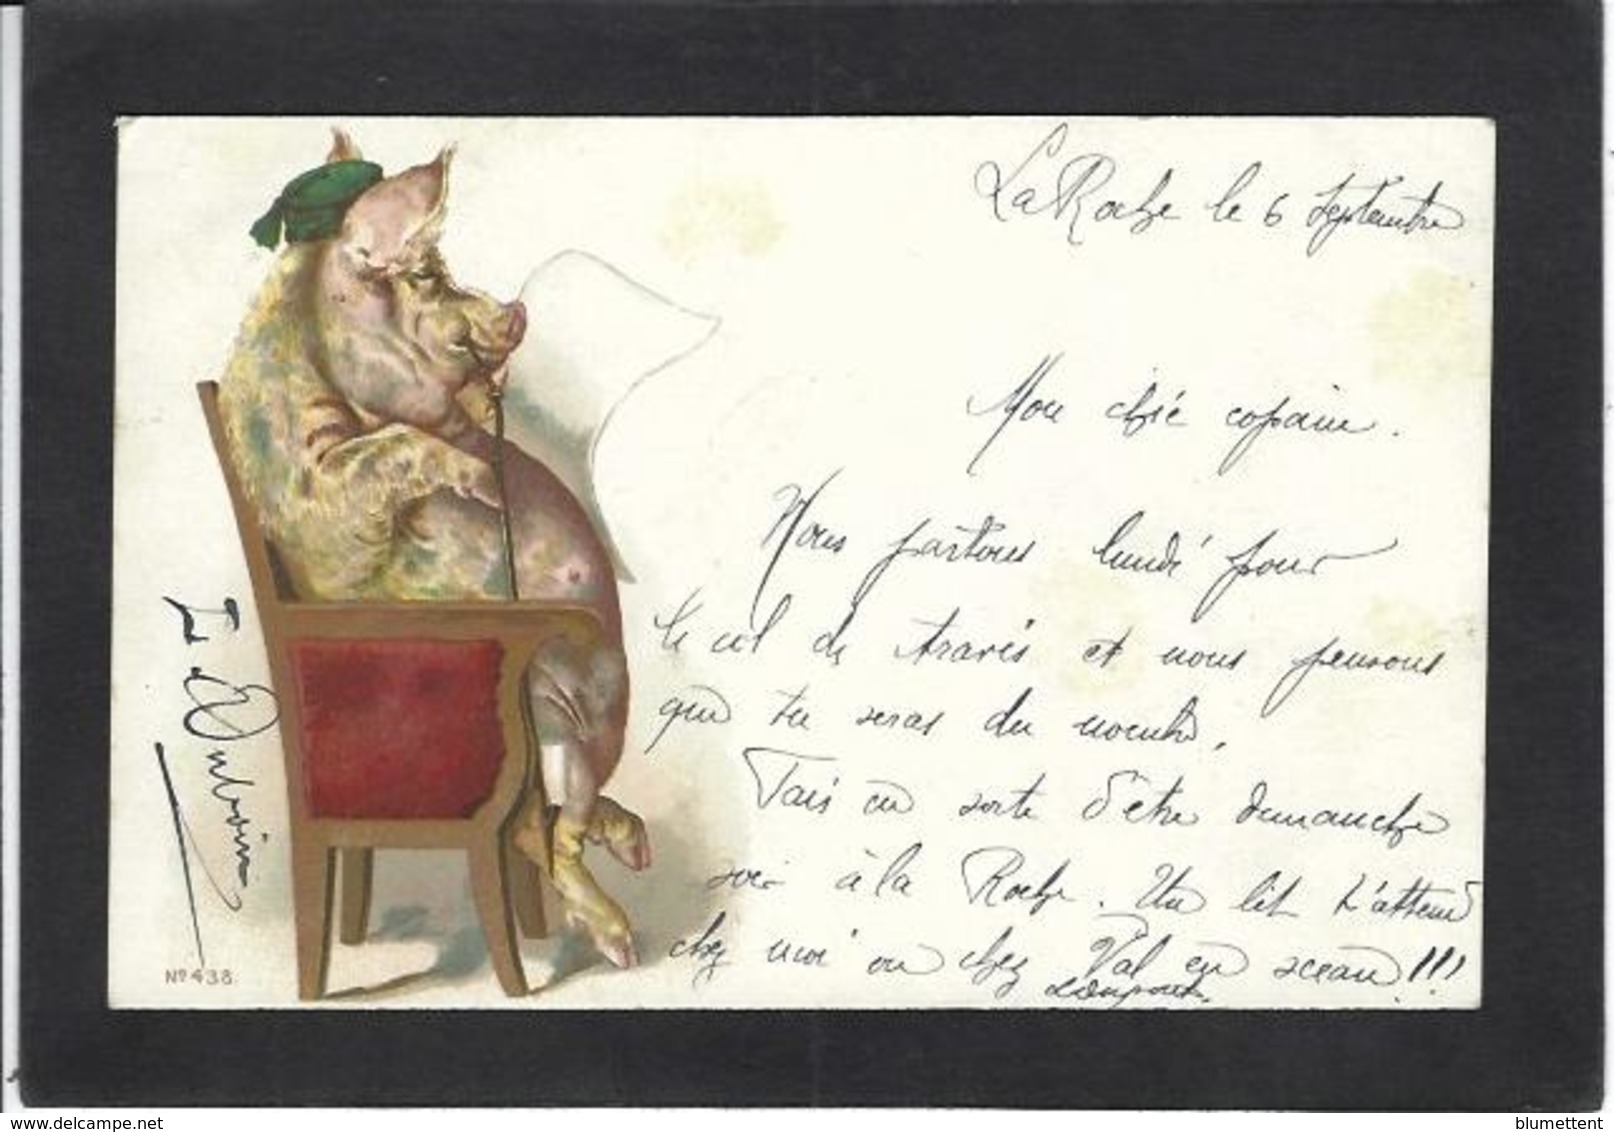 La Roche le 6 Septembre
Mon chié copain.
Nous partons lundi pour
le col de Pravis et nous pensons
que tu seras du nombre.
Fais en sorte d'être dimanche
soir à la Roche. Un lit t'attend
chez moi ou chez Val en sceau!!!
Dubouin
Nº 438
delcampe.net
blumettent